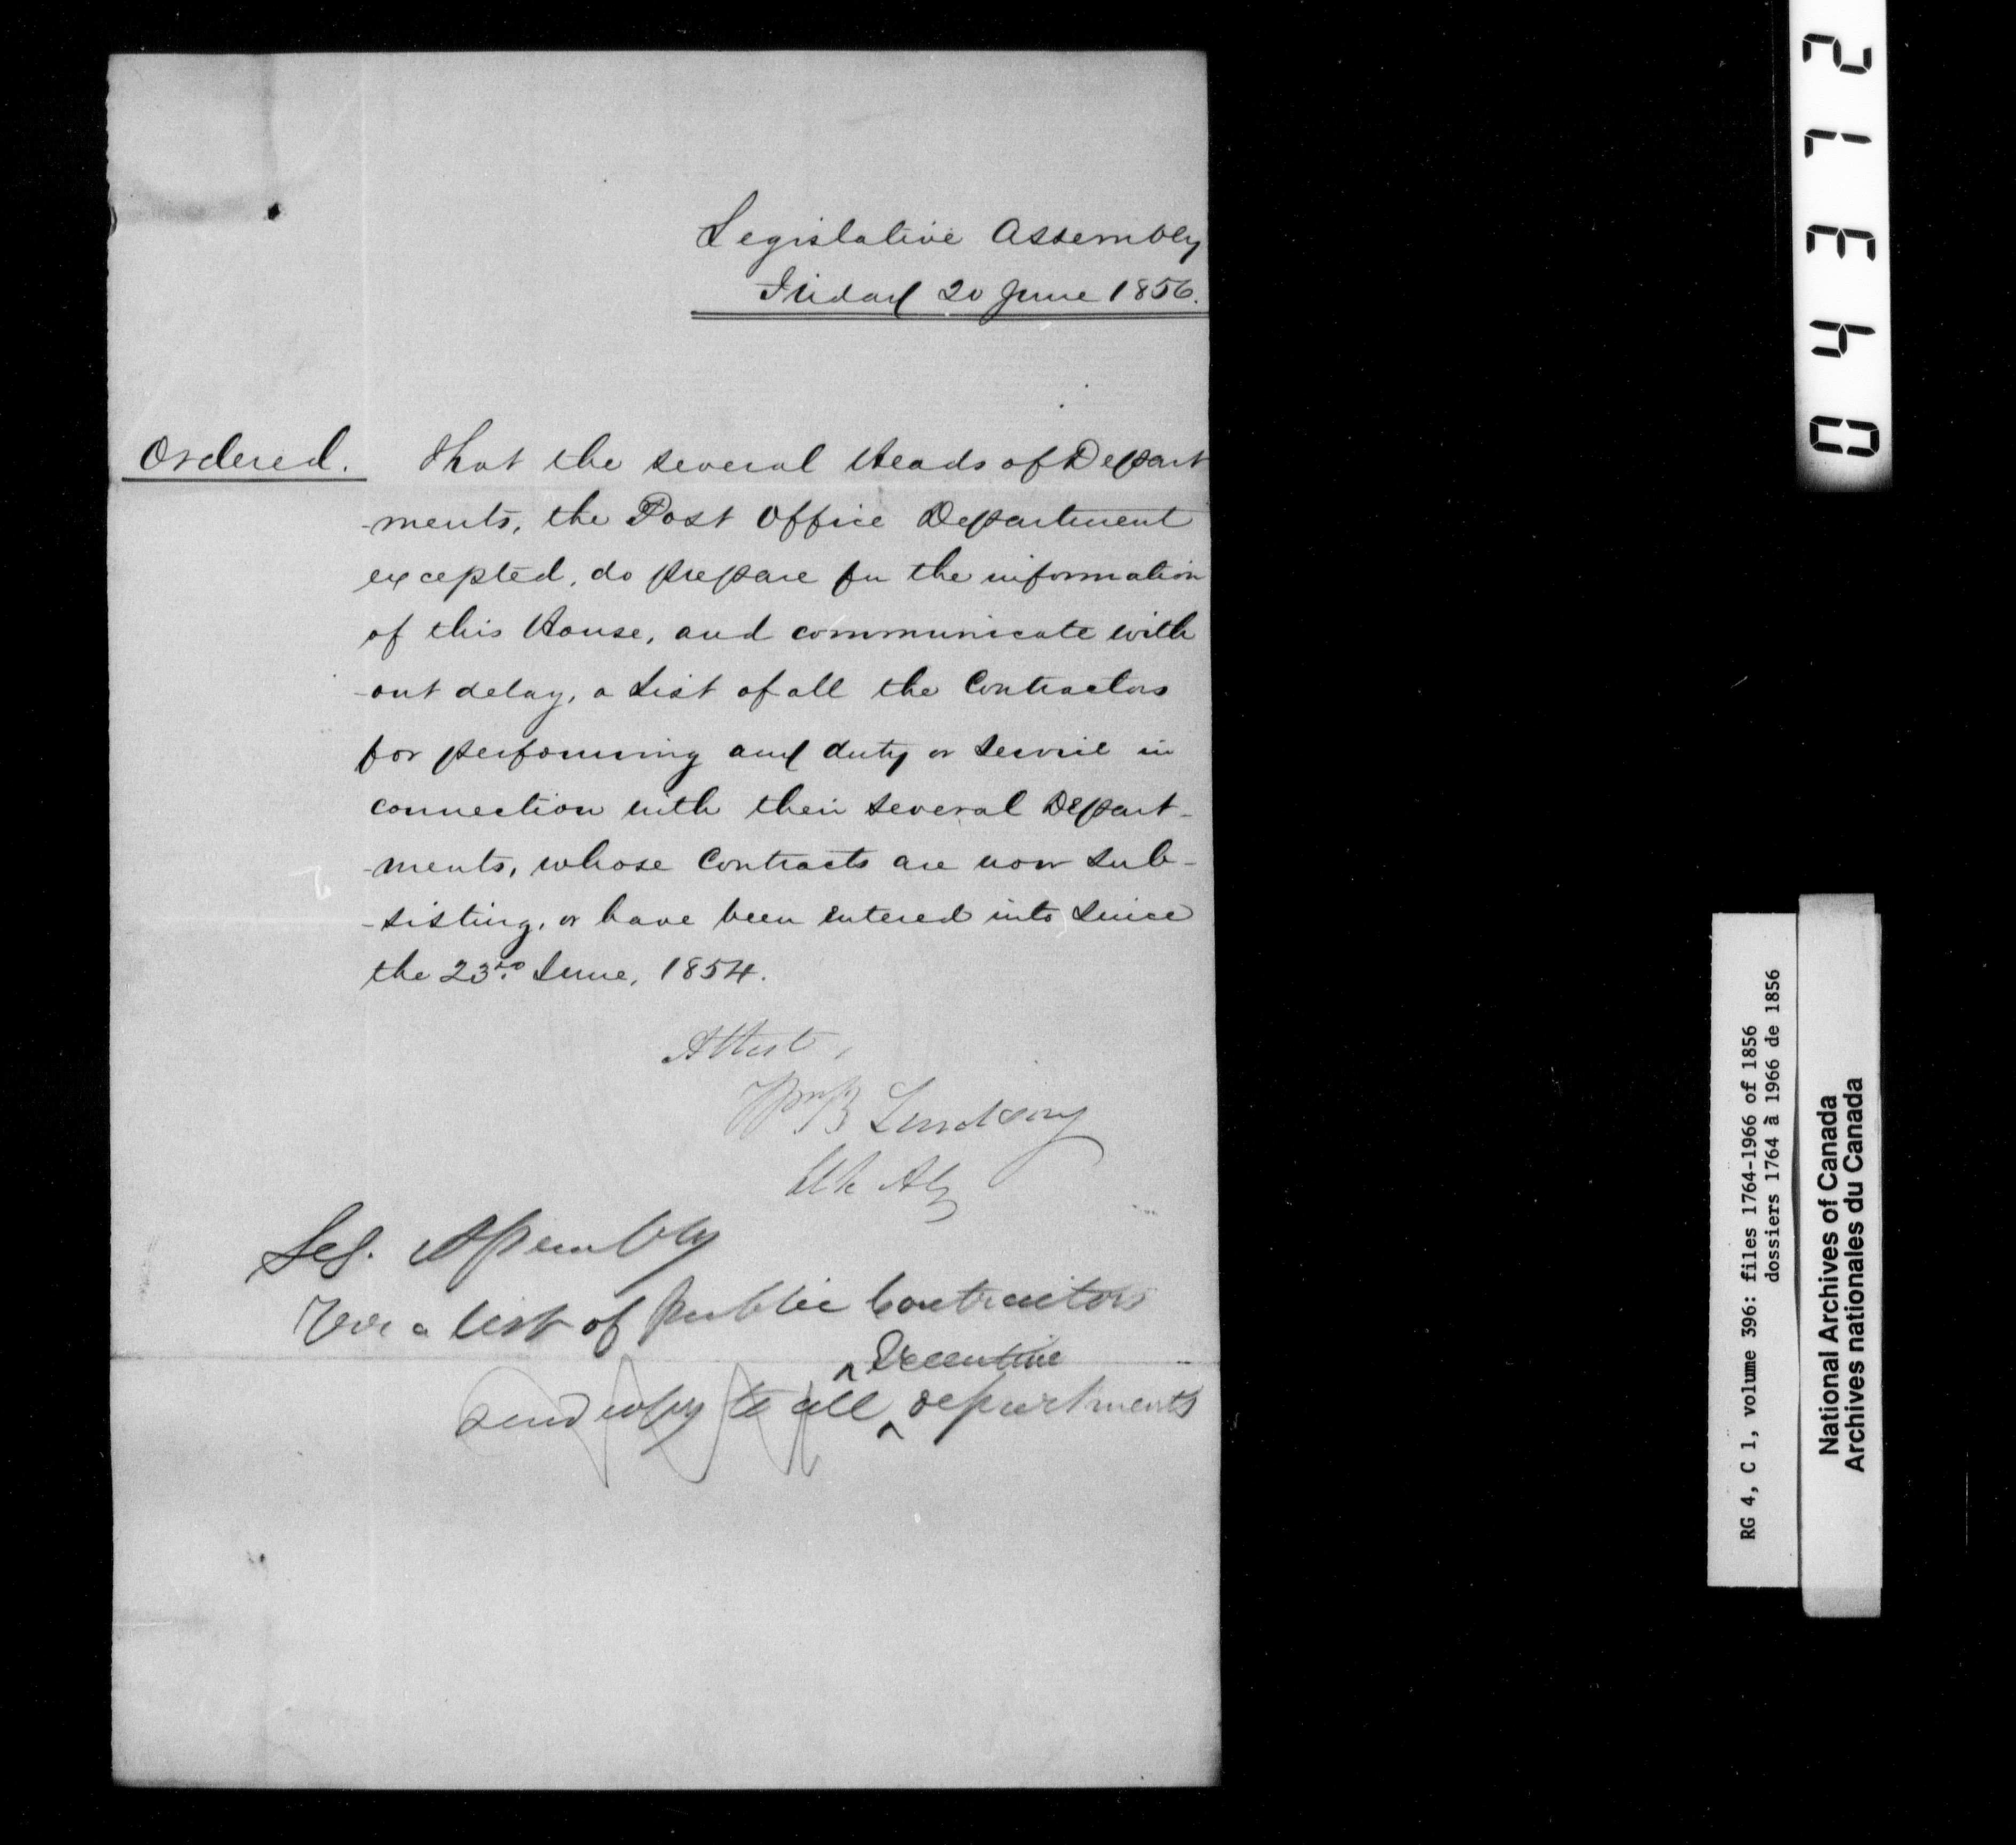 Legislative Assembly
Friday 20 June 1856.
Ordered. That the several Heads of Depart
-ments, the Post Office Department
excepted, do prepare for the information
of this House, and communicate with
-out delay, a List of all the Contractors
for performing any duty or Service in
connection with their several Depart-
-ments, whose Contracts are now Sub-
-sisting, or have been entered into Since
the 23rd June, 1854.
Attest,
Wm B Lindsay
Clk Aly
Leg. Assembly
For a list of public Contractors
^ Executive
Send copy to all ^ departments
04312
RG 4, C 1, volume 396: files 1764-1966 of 1856
dossiers 1764 à 1966 de 1856
National Archives of Canada
Archives nationales du Canada